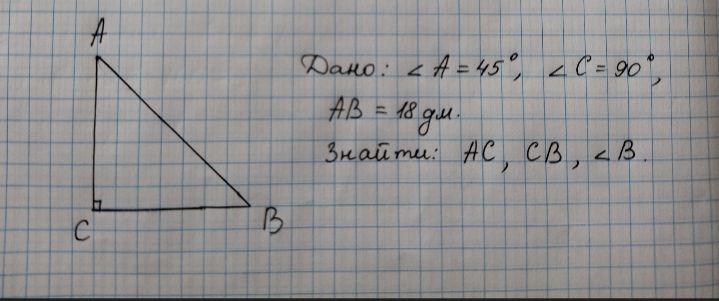 A
C
B
Дано: ∠A = 45°, ∠C = 90°,
AB = 18 дм.
Знайти: AC, CB, ∠B.